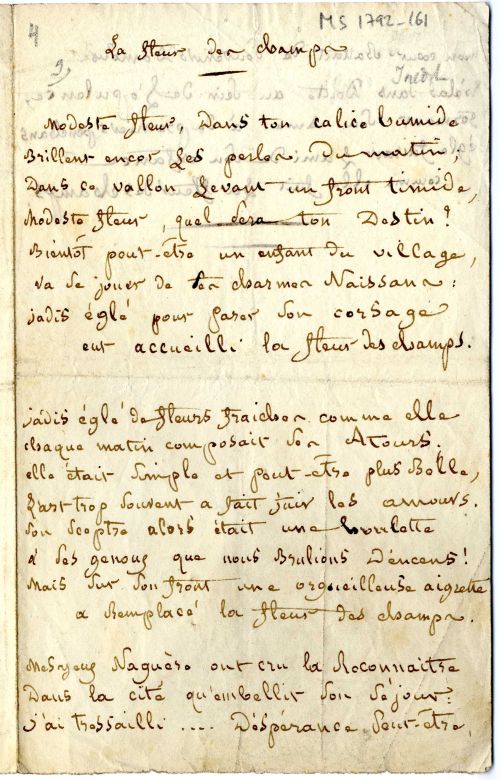 MS 1792-161
La fleur des champs
9,
Inéd.
Modeste fleur, Dans ton calice humide
Brillent encor Les perles Du matin,
Dans ce vallon Levant un front timide,
Modeste fleur, quel sera ton Destin?
Bientôt peut-être un enfant du village,
va se jouer de tes charmes Naissans:
jadis églé pour parer son corsage
eut accueilli la fleur des champs.
jadis églé de fleurs fraiches comme elle
chaque matin composait ses Atours.
elle était simple et peut-être plus Belle,
L'art trop souvent a fait fuir les amours.
son sceptre alors était une houlette
à ses genoux que nous Brulions D'encens!
Mais sur son front une orgueilleuse aigrette
a Remplacé la fleur des champs.
Mes yeux Naguère ont cru la Reconnaitre
Dans la cité qu'embellit son séjour:
j'ai tressailli .... D'éspérance peut-être,